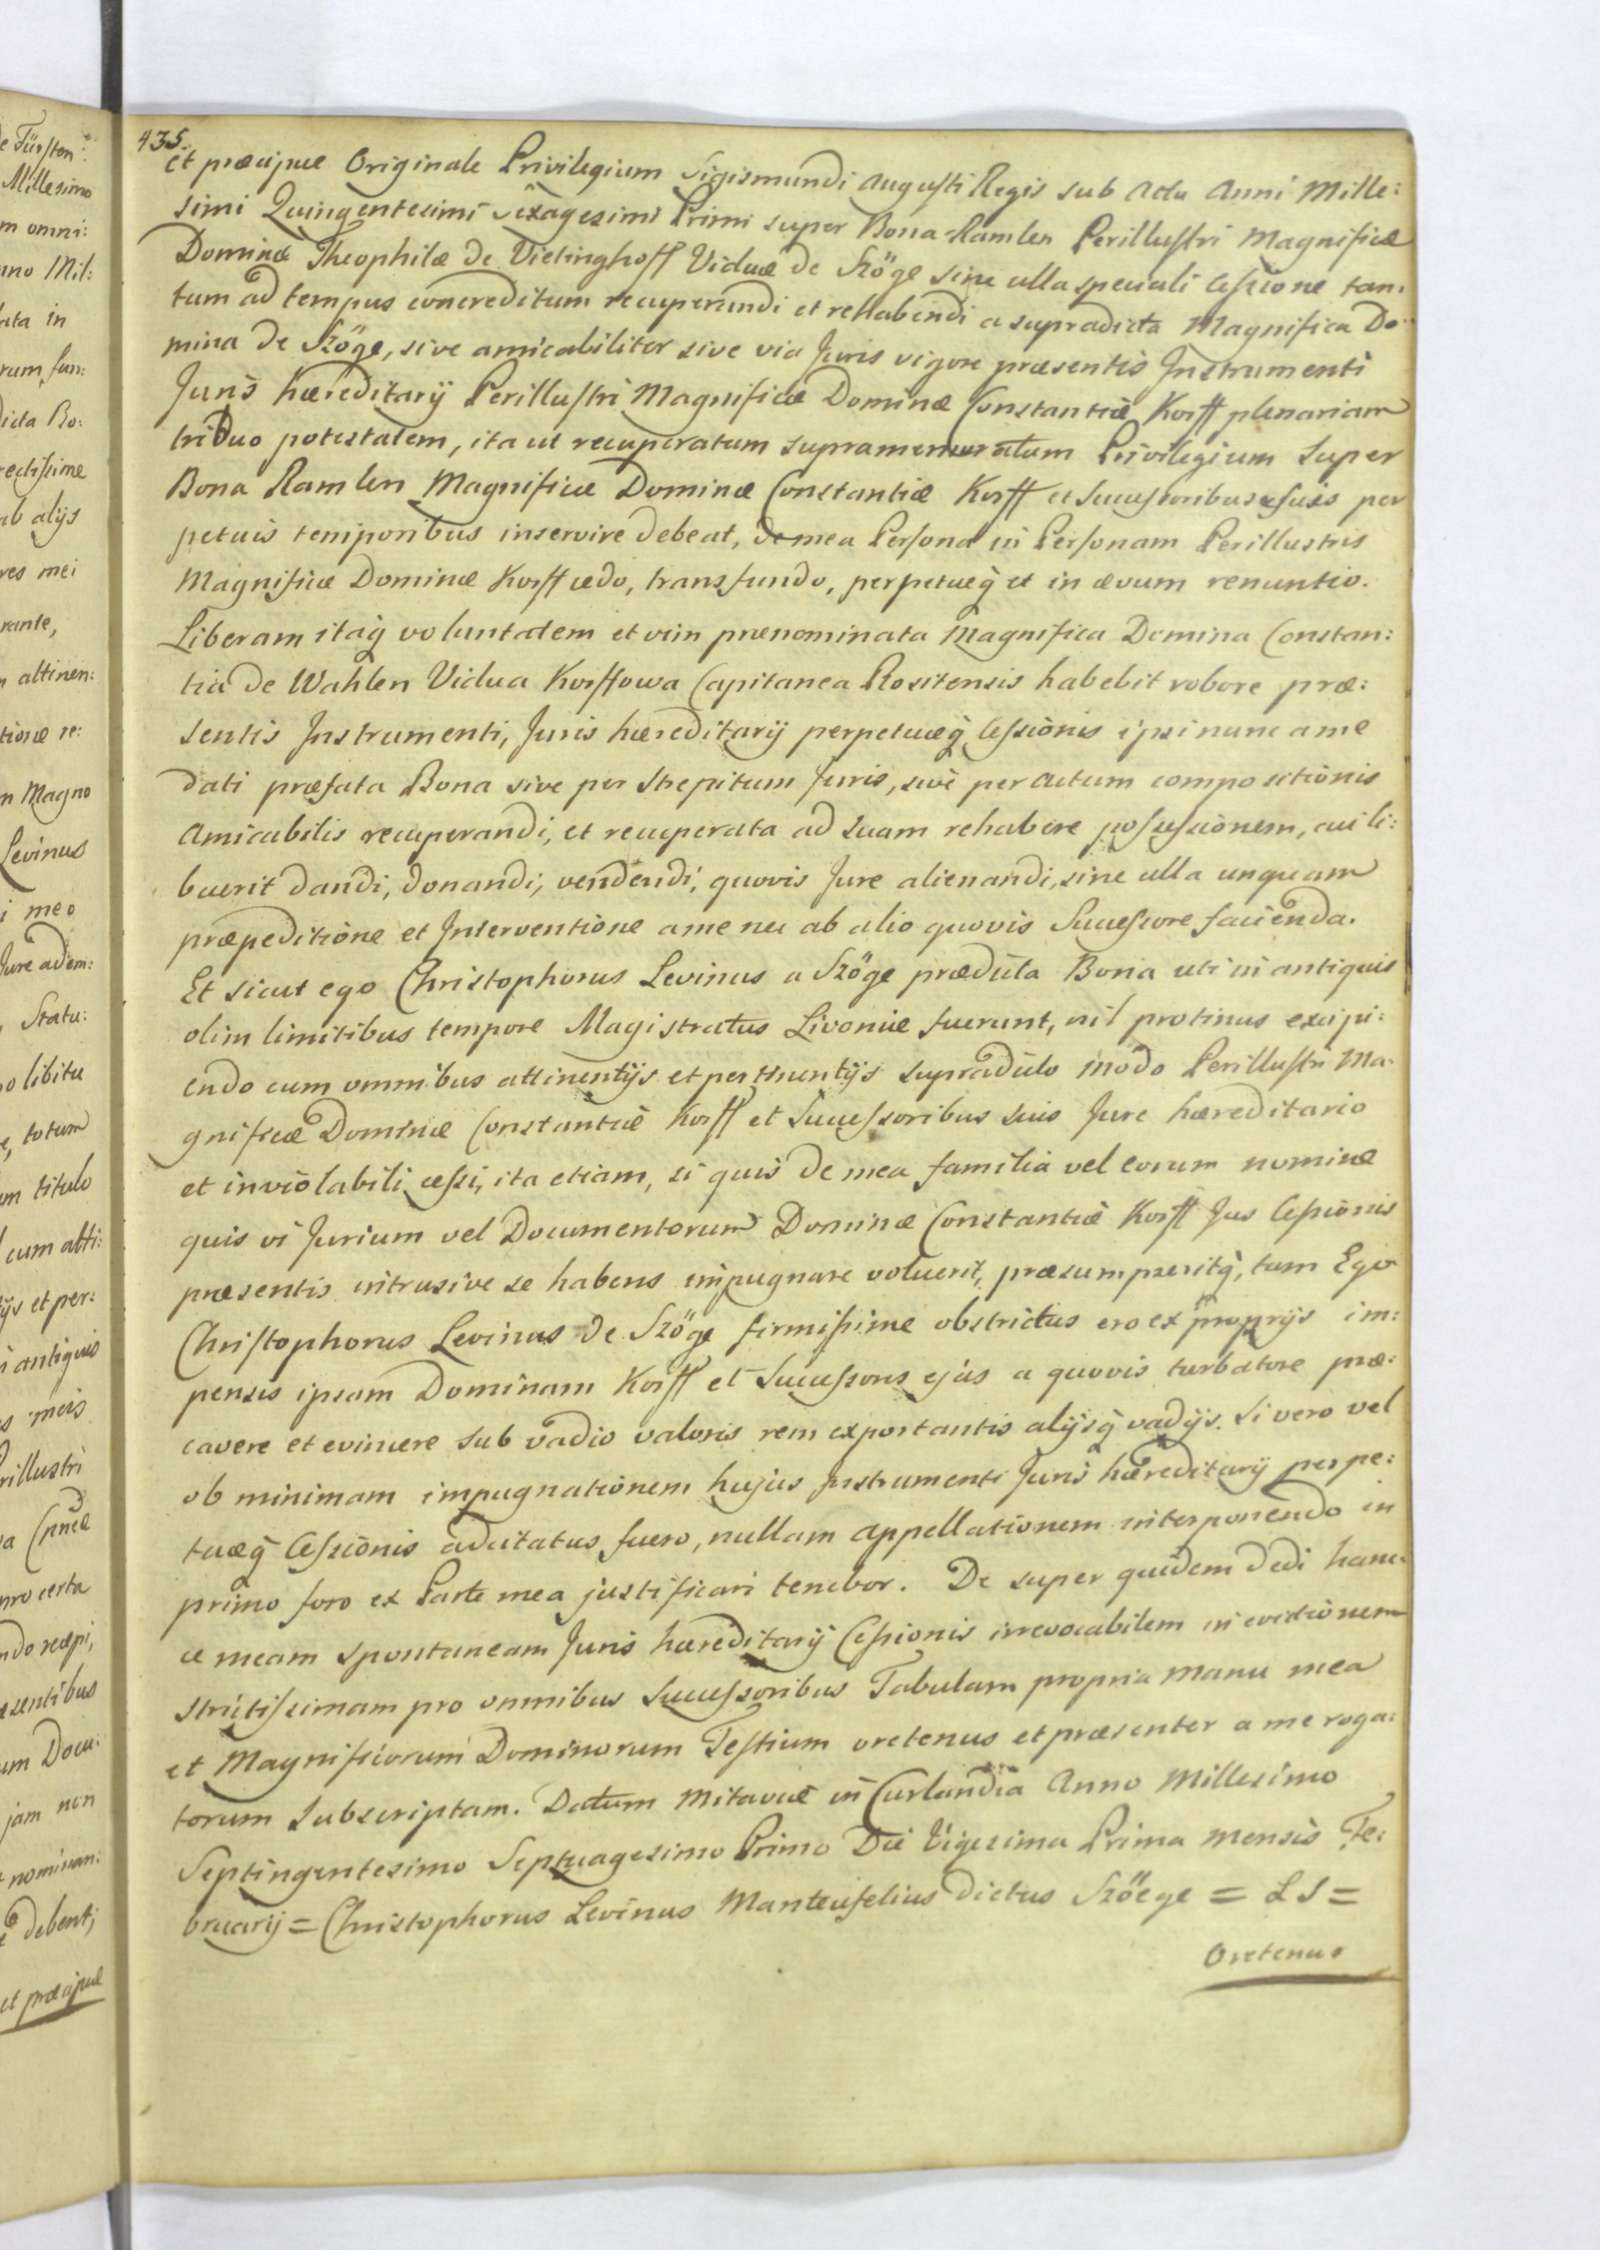 435.
et præcipue Originale Privilegium Sigismundi Augusti Regis sub Actu Anni Mille:
simi Quingentesimi Sexagesimi Primi super Bona Ramlen Perillustri Magnificæ
Dominæ Theophilæ de Vietinghoff Viduæ de Szöge sine ulla speciali Cessione tan:
tum ad tempus concreditum recuperandi et rehabendi a supradicta Magnifica Do:
mina de Szöge, sive amicabiliter sive via Juris vigore præsentis Instrumenti
Juris hæreditarij Perillustri Magnificæ Dominæ Constantiæ Korff plenariam
tribuo potestatem, ita ut recuperatum supramemoratum Privilegium super
Bona Ramlen Magnificæ Dominæ Constantiæ Korff et Successoribus suis per
petuis temporibus inservire debeat, de mea Persona in Personam Perillustris
Magnificæ Dominæ Korff cedo, transfundo, perpetueq̀ et in ævum renuntio.
Liberam itaq̀ voluntatem et vim prænominata Magnifica Domina Constan:
tia de Wahlen Vidua Korffowa Capitanea Rositensis habebit robore præ:
sentis Instrumenti, Juris hæreditarij perpetuæq̀ Cessionis ipsi nunc a me
dati præfata Bona sive per Strepitum Juris, sive per Actum compositionis
Amicabilis recuperandi, et recuperata ad suam rehabere possessionem, cui li:
buerit dandi, donandi, vendendi, quovis Jure alienandi, sine ulla unquam
præpeditione et Interventione a me nec ab alio quovis Successore facienda.
Et sicut ego Christophorus Levinus a Szöge prædicta Bona uti in antiquis
olim limitibus tempore Magistratus Livoniæ fuerunt, nil protinus excipi:
endo cum omnibus attinentijs et pertinentijs supradicto modo Perillustri Ma:
gnificæ Dominæ Constantiæ Korff et Successoribus suis Jure hæreditario
et inviolabili cessi, ita etiam, si quis de mea familia vel eorum nomine
quis vi Jurium vel Documentorum Dominæ Constantiæ Korff Jus Cessionis
præsentis intrusive se habens impugnare voluerit, præsumpseritq̀, tum Ego
Christophorus Levinus de Szöge firmissime obstrictus ero ex proprijs im:
pensis ipsam Dominam Korff et Successores ejus a quovis turbatore præ:
cavere et evincere sub vadio valoris rem exportantis alijsq̀ vadijs. Si vero vel
ob minimam impugnationem hujus Instrumenti Juris hæreditarij perpe:
tuæq̀ Cessionis adcitatus fuero, nullam appellationem interponendo in
primo foro ex Parte mea justificari tenebor. De super quidem dedi hanc
ce meam spontaneam Juris hæreditarij Cessionis irrevocabilem in evictionem
strictissimam pro omnibus Successoribus Tabulam propria manu mea
et Magnificorum Dominorum Testium oretenus et præsenter a me roga:
torum subscriptam. Datum Mitaviæ in Curlandia Anno Millesimo
Septingentesimo Septuagesimo Primo Die Vigesima Prima mensis Fe:
bruarij = Christophorus Levinus Manteufelius dictus Szöege = L S =
Oretenus